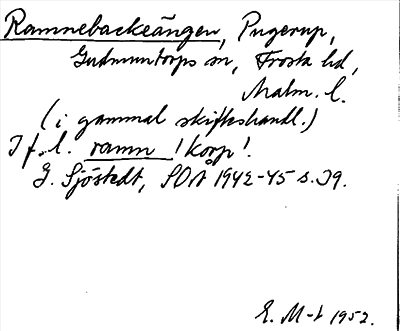 Ramnebackeängen, Pugerup,
Gudmuntorps sn, Frosta hd,
Malm. l.
(i gammal skifteshandl.)
Jfr. l. ramn 'korp'.
G. Sjöstedt, SOÅ 1942-45 s. 39.
E. M-t 1952.